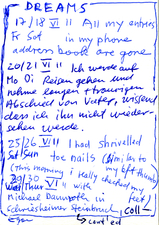 DREAMS
17/18 VI " All my entries
Fr Sat in my phone
address book are gone
20/21 VI " Ich werde auf
Mo Di Reisen gehen und
nehme langen + traurigen
Abschied von Vater, wissend
dass ich ihn nicht wieder-
sehen werde.
25/26 VI " I had shrivelled
Sat Sun toe nails (similar to
my left thumb)
(This morning I really checked my
feet)
29/30 VI " with
Wed Thur
Michael Dannroth in
Schriesheimer Steinbruch, coll-
→ cont'ed